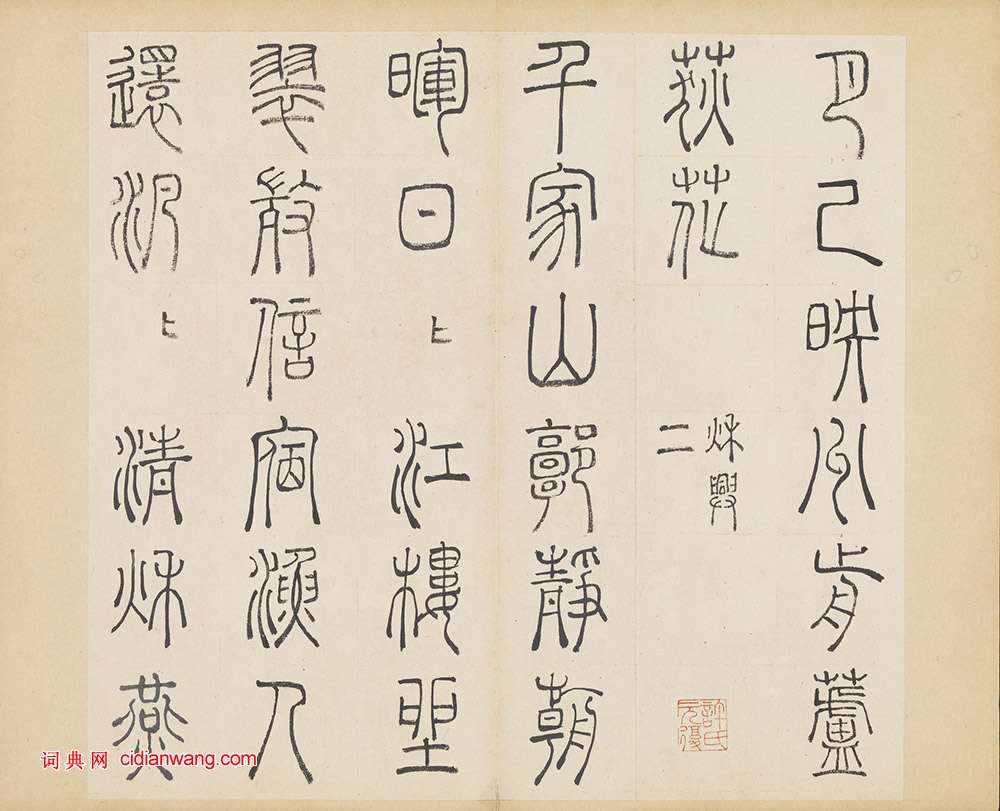 月已映州前蘆
荻花
秋興
二
許氏元復
千家山郭靜朝
暉日〻江樓坐
翠微信宿漁人
還汎〻清秋燕
词典网 cidianwang.com